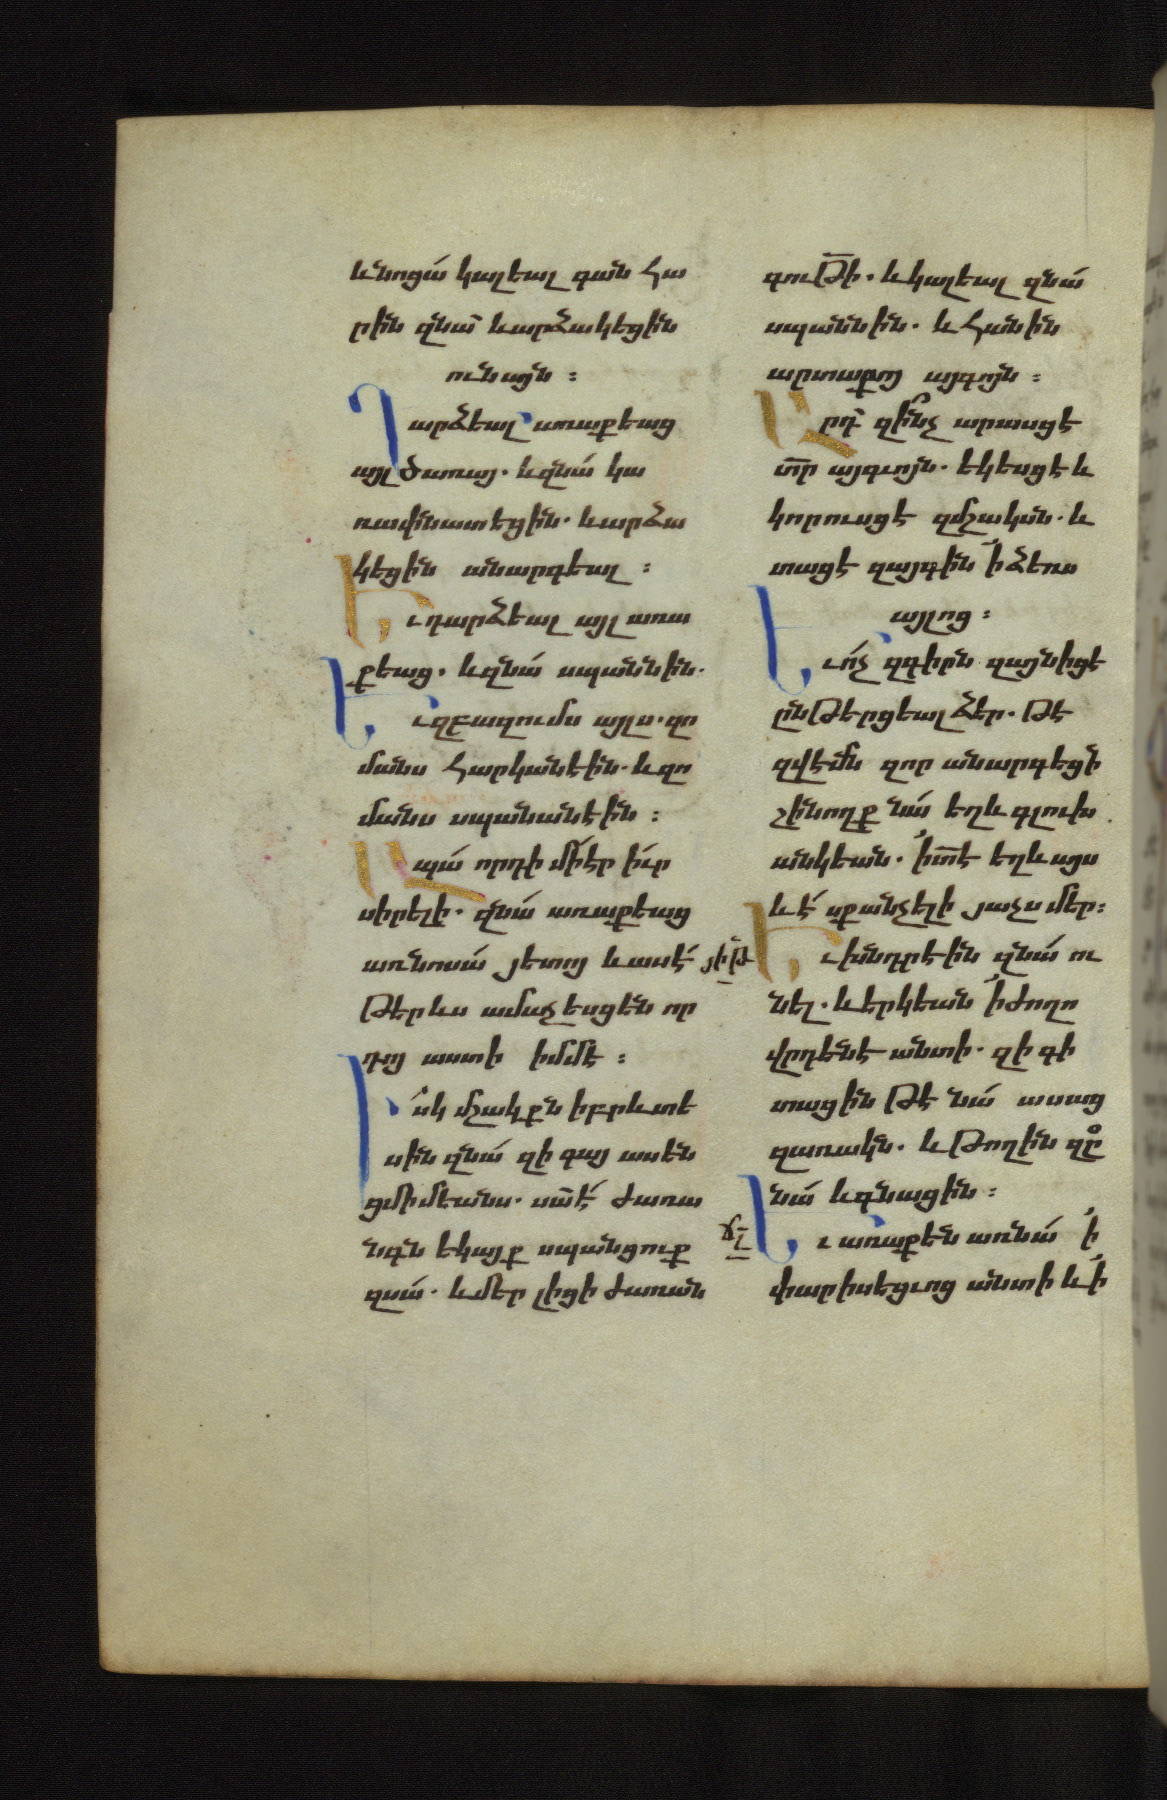 և նոցա կալեալ գան հա
րին զնա՝ և արձակեցին
ունայն :
Դարձեալ առաքեաց
այլ ծառայ . և զնա կա
ռափնատեցին . և արձա
կեցին անարգեալ :
Եւ դարձեալ այլ առա
քեաց . և զնա սպաննին .
Եւ զբազումս այլս . զո
մանս հարկանէին . և զո
մանս սպանանէին :
Ապա որդի մի էր իւր
սիրելի . զնա առաքեաց
առ նոսա յետոյ և ասէ
թերևս ամաչեսցեն որ
դոյ աստի իմմէ :
Իսկ մշակքն իբրև տե
սին զնա զի գայ ասեն
ցմիմեանս . սա է ժառա
նգն եկայք սպանցուք
զսա . և մեր լիցի ժառան
գութի . և կալեալ զնա
սպաննին . և հանին
արտաքոյ այգոյն :
Արդ զինչ արասցէ
տր այգւոյն . եկեսցէ և
կորուսցէ զմշակն . և
տացէ զայգին ի ձեռս
այլոց :
Եւ ոչ զգիրն զայն իցե
ընթերցեալ ձեր . թէ
զվէմն զոր անարգեցի
շինողք նա եղև գլուխ
անկեան . ի տէ եղև այս
և է սքանչելի յաչս մեր :
Եւ խնդրէին զնա ու
նել . և երկեան ի ժողո
վրդենէ անտի . զի գի
տացին թէ նա ասաց
զառակն . և թողին զը
նա և գնացին :
ՃԼ
Եւ առաքեն առ նա ի
փարիսեցւոց անտի և ի